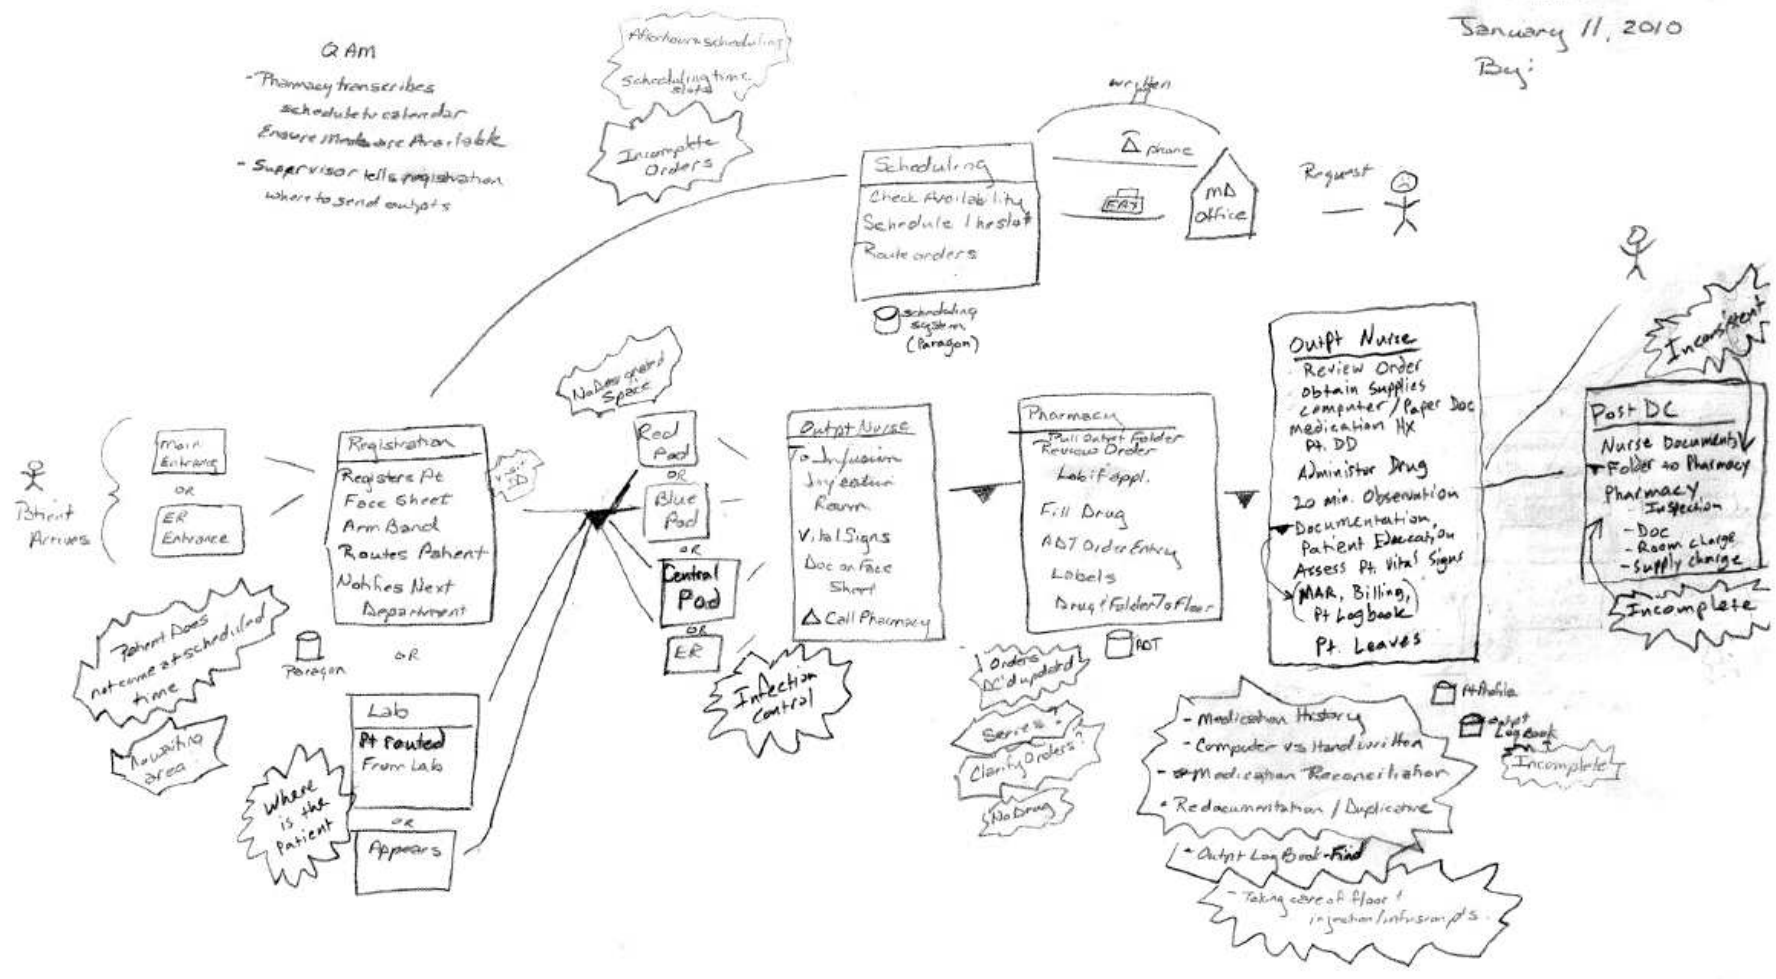 January 11, 2010
By:
QAM
- Pharmacy transcribes
schedule to calendar
Ensure Meds are Available
- Supervisor tells registration
where to send outpts
Afterhours scheduling
Scheduling time
slots
Incomplete
Orders
Scheduling
Check Availability
Schedule 1 hr slot
Route orders
scheduling
system
(Paragon)
written
Δ phone
FAX
MD
Office
Request
Patient
Arrives
Main
Entrance
OR
ER
Entrance
Registration
Registers Pt
Face Sheet
Arm Band
Routes Patient
Notifies Next
Department
Paragon
OR
Patient Does
not come at scheduled
time
No waiting
area
Where
is the
Patient
Lab
Pt routed
From Lab
OR
Appears
No Designated
Space
Red
Pod
OR
Blue
Pod
OR
Central
Pod
OR
ER
Outpt Nurse
To Infusion
Injection
Room
Vital Signs
Doc on Face
Sheet
Δ Call Pharmacy
Infection
Control
Pharmacy
Pull Outpt Folder
Review Order
Lab if appl.
Fill Drug
ADT Order Entry
Labels
Drug & Folder To Floor
ADT
Orders
DC'd updated
Series?
Clarify Orders?
No Drug
Outpt Nurse
Review Order
Obtain Supplies
Computer/Paper Doc
Medication Hx
Pt. DD
Administer Drug
20 min. Observation
Documentation,
Patient Education
Assess Pt. Vital Signs
MAR, Billing,
Pt Logbook
Pt. Leaves
Pt Profile
Outpt
Log Book
Incomplete
- Medication History
- Computer vs Handwritten
- Medication Reconciliation
• Redocumentation / Duplicative
• Outpt Log Book - Find
- Taking care of floor &
injection/infusion pts.
Inconsistent
Post DC
Nurse Documents
Folder to Pharmacy
Pharmacy
Inspection
- Doc
- Room charge
- Supply charge
Incomplete